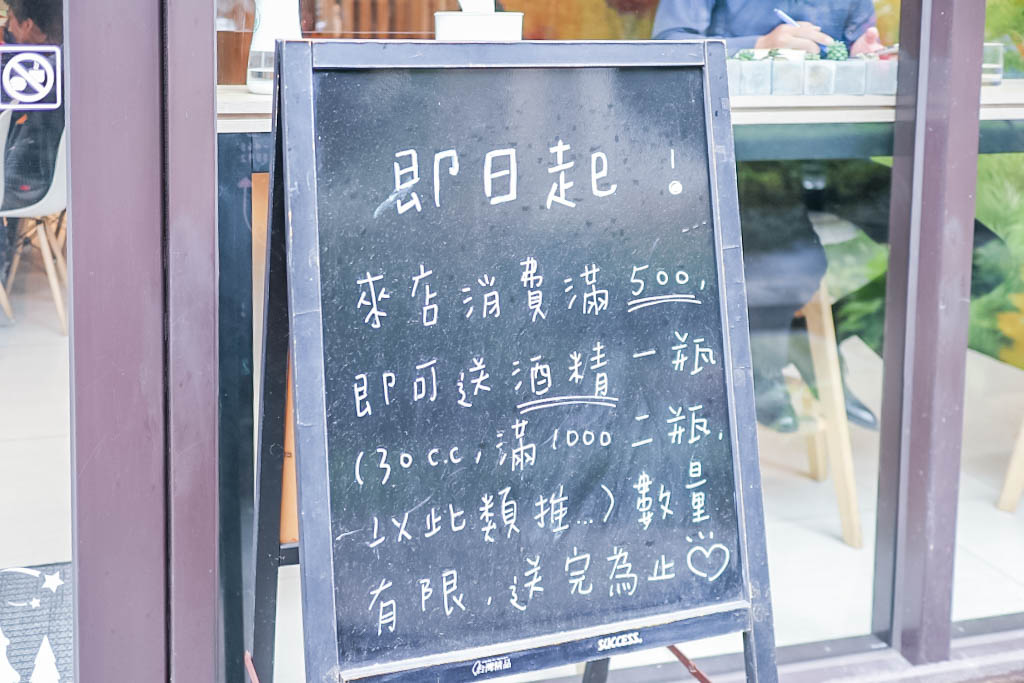 即日起！
來店消費滿500,
即可送酒精一瓶
(30c.c,滿1000二瓶,
以此類推...)數量
有限,送完為止♡
台灣精品
SUCCESS.